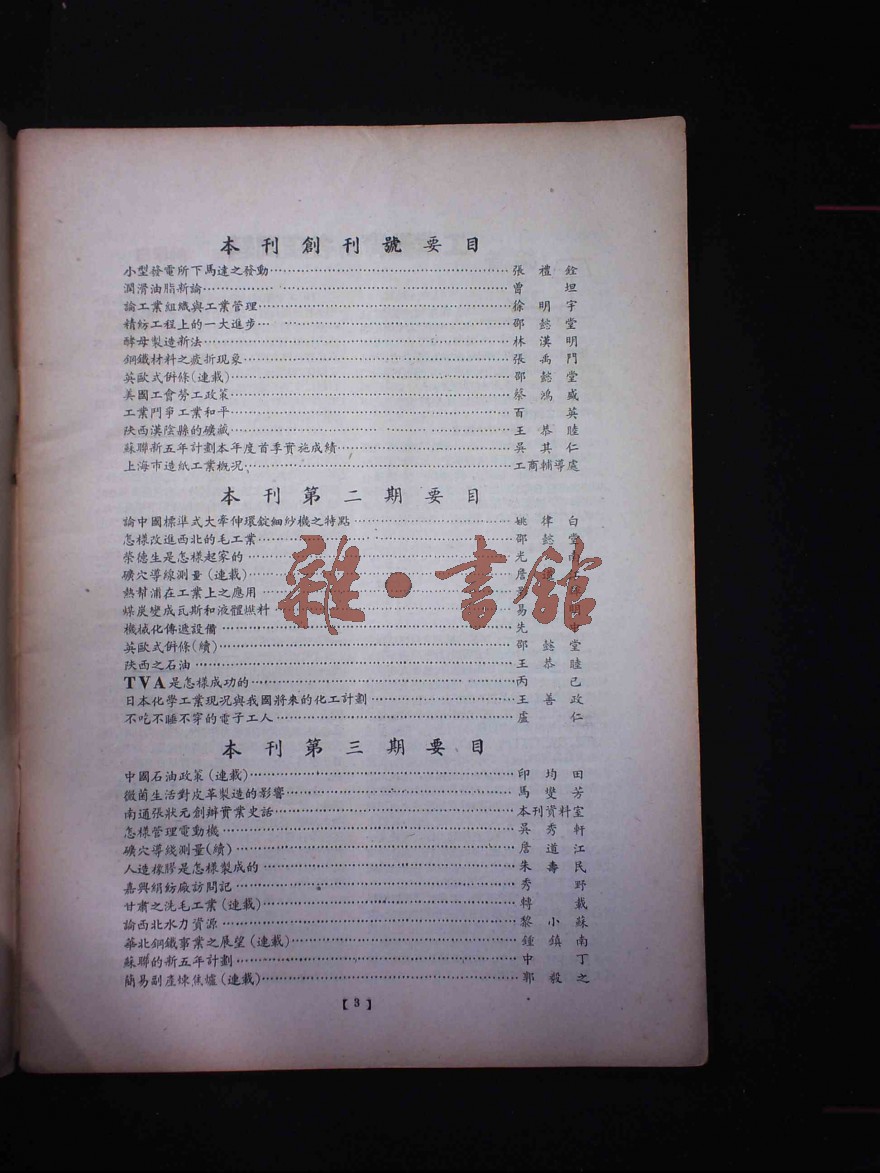 本刊創刊號要目
小型發電所下馬達之發動 張禮銓
潤滑油脂新論 曾坦
論工業組織與工業管理 徐明宇
精紡工程上的一大進步 鄒懿堂
酵母製造新法 林漢明
鋼鐵材料之疲折現象 張禹門
英歐式併條(連載) 鄒懿堂
美國工會勞工政策 蔡鴻盛
工業鬥爭工業和平 百英
陝西漢陰縣的礦藏 王恭睦
蘇聯新五年計劃本年度首季實施成績 吳其仁
上海市造紙工業概況 工商輔導處
本刊第二期要目
論中國標準式大牽伸環錠細紗機之特點 姚律白
怎樣改進西北的毛工業 鄒懿堂
榮德生是怎樣起家的 光
礦穴導線測量(連載) 詹
熱幫浦在工業上之應用
煤炭變成瓦斯和液體燃料 易
機械化傳遞設備 先
英歐式併條(續) 鄒懿堂
陝西之石油 王恭睦
TVA是怎樣成功的 丙己
日本化學工業現況與我國將來的化工計劃 王善政
不吃不睡不穿的電子工人 盧仁
本刊第三期要目
中國石油政策(連載) 印均田
微菌生活對皮革製造的影響 馬燮芳
南通張狀元創辦實業史話 本刊資料室
怎樣管理電動機 吳秀軒
礦穴導綫測量(續) 詹道江
人造橡膠是怎樣製成的 朱壽民
嘉興絹紡廠訪問記 秀野
甘肅之洗毛工業(連載) 轉載
論西北水力資源 黎小蘇
華北鋼鐵事業之展望(連載) 鍾鎮南
蘇聯的新五年計劃 中丁
簡易副產煉焦爐(連載) 郭毅之
【3】
雜·書館